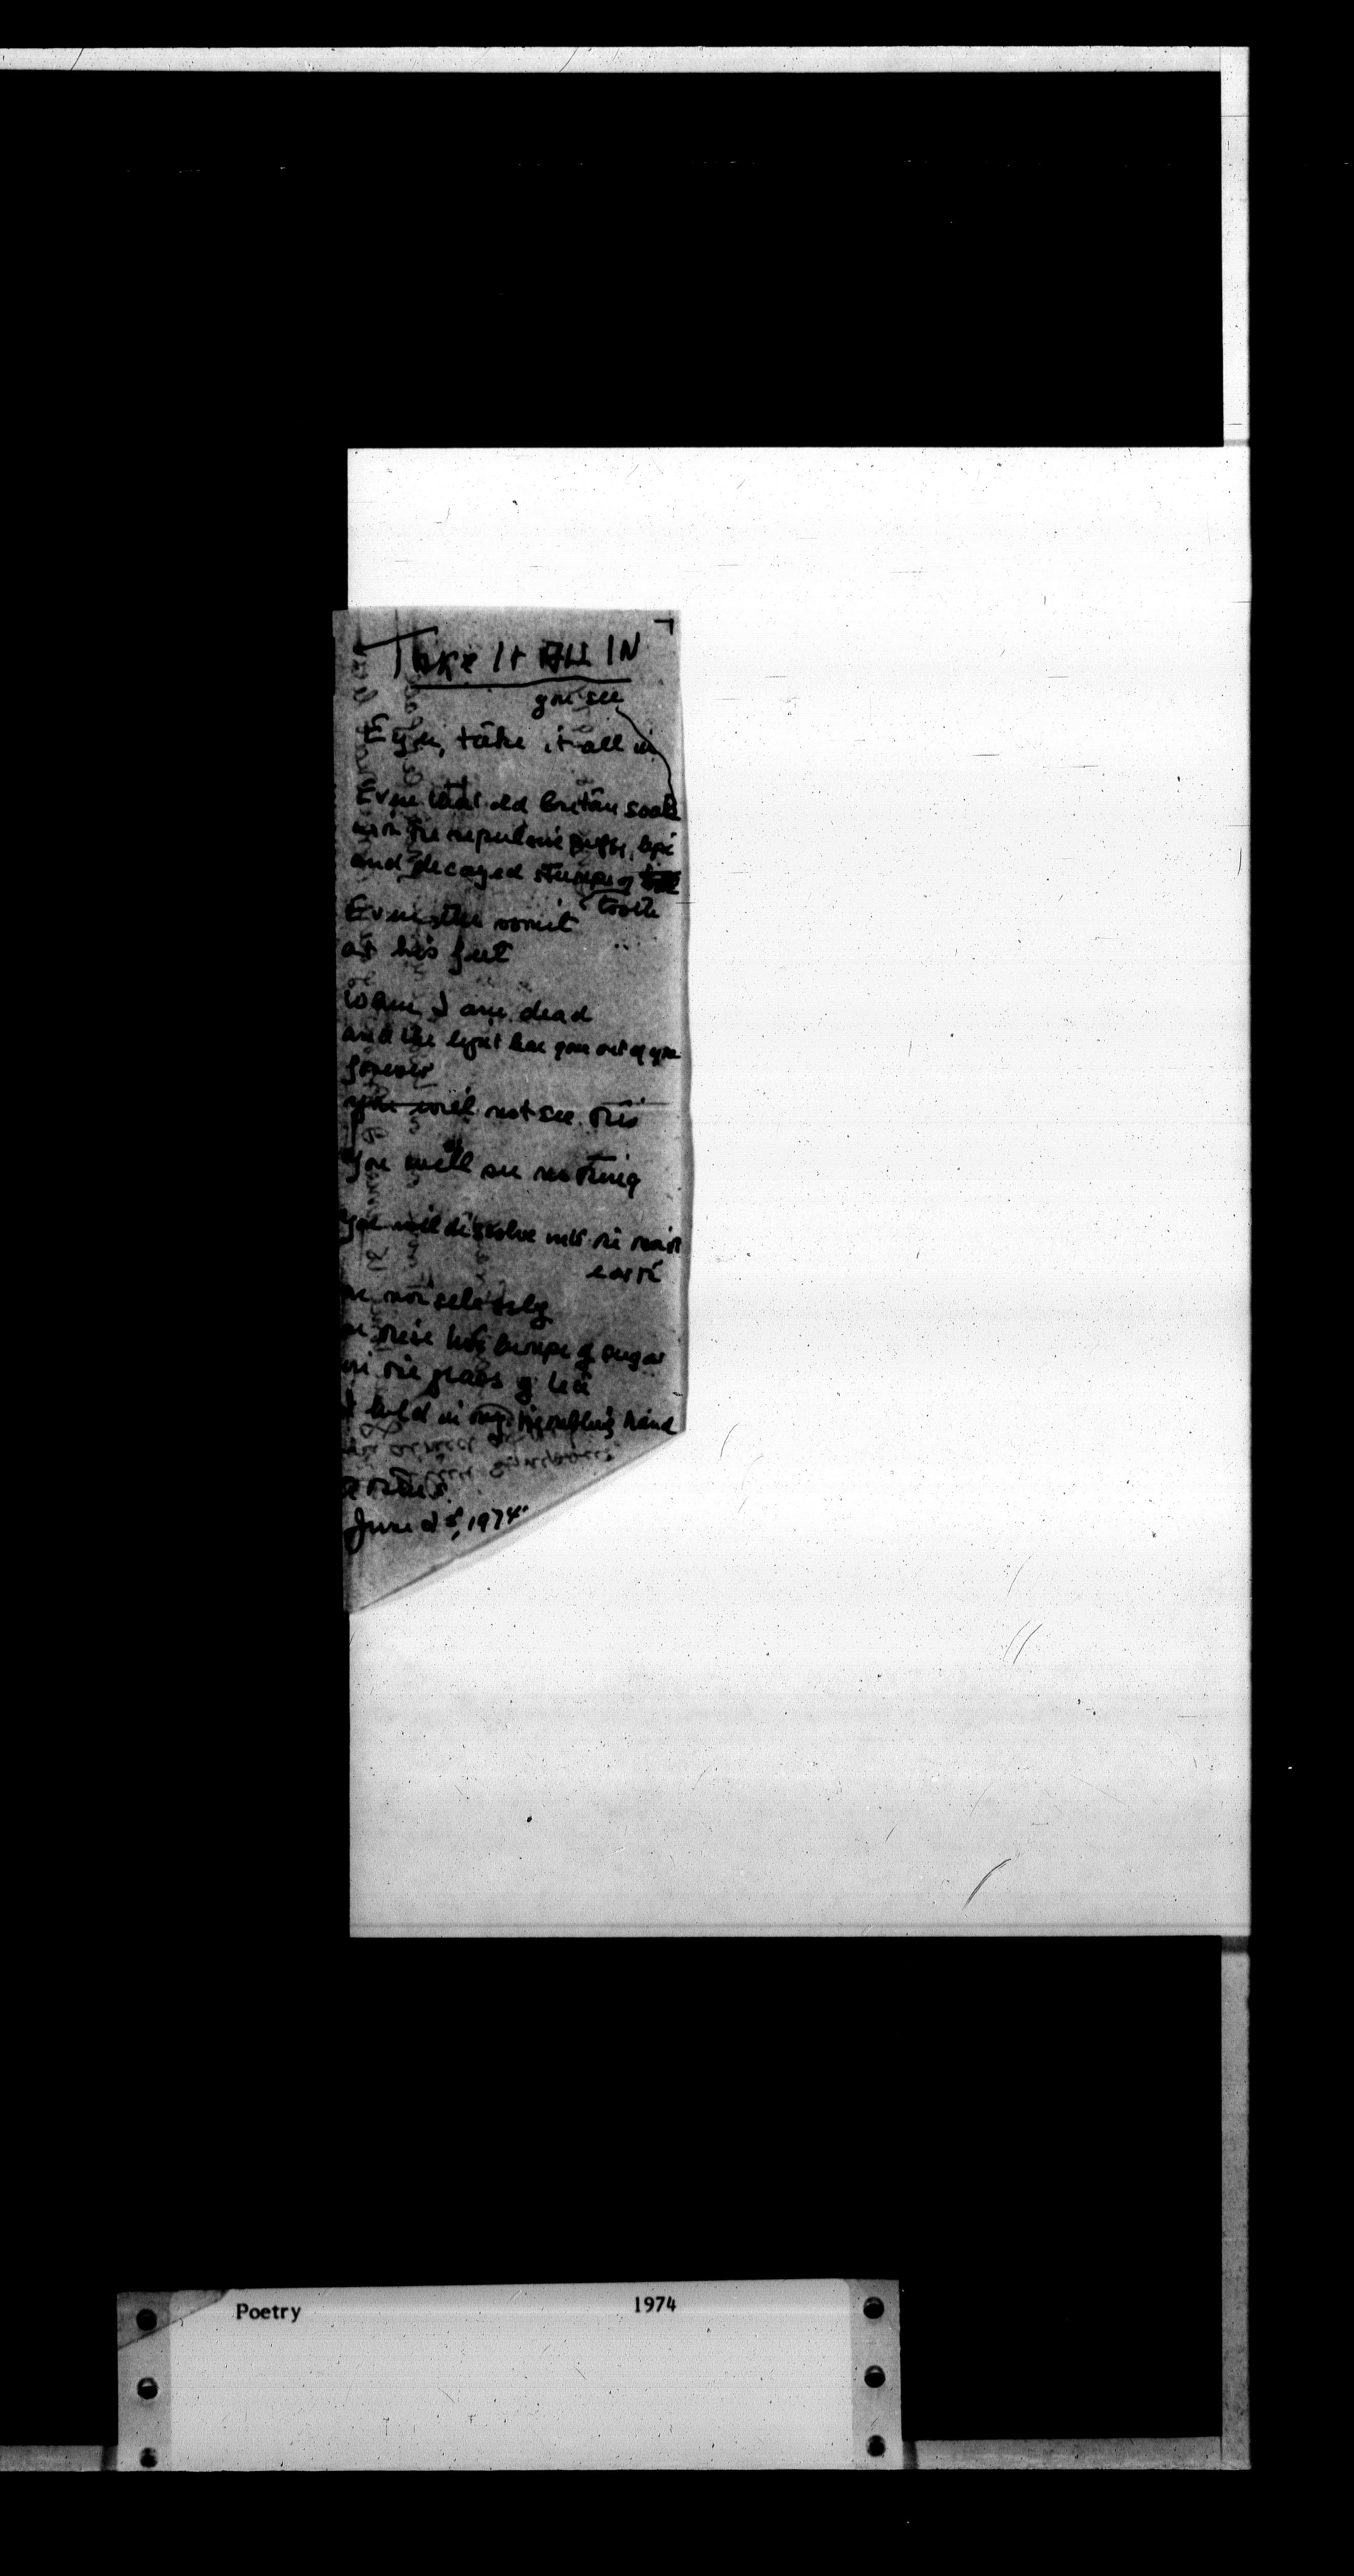 TAKE It ALL IN
you see
Eyes, take it all in
Even that old Cretan soak
with the repulsive puffy lips
and decayed stumps of
tooth
Even the vomit
at his feet
When I am dead
and the light has gone out of you
forever
you will not see this
You will see nothing
You will dissolve into the moist
earth
as noiselessly
as these two lumps of sugar
in the glass of tea
I hold in my trembling hand
Athens
June 25, 1974
Poetry 1974